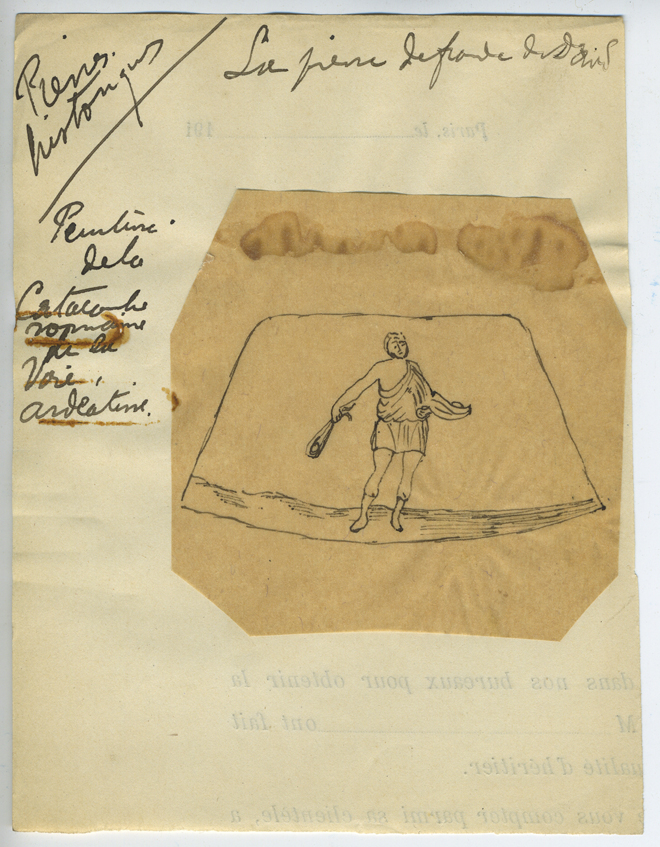 Pierres
historiques
La pierre de fronde de David
Paris, le 191
Peinture
de la
Catacombe
romaine
de la
Voie
ardéatine.
dans nos bureaux pour obtenir la
M ont fait
qualité d'héritier.
vous compter parmi sa clientèle, a